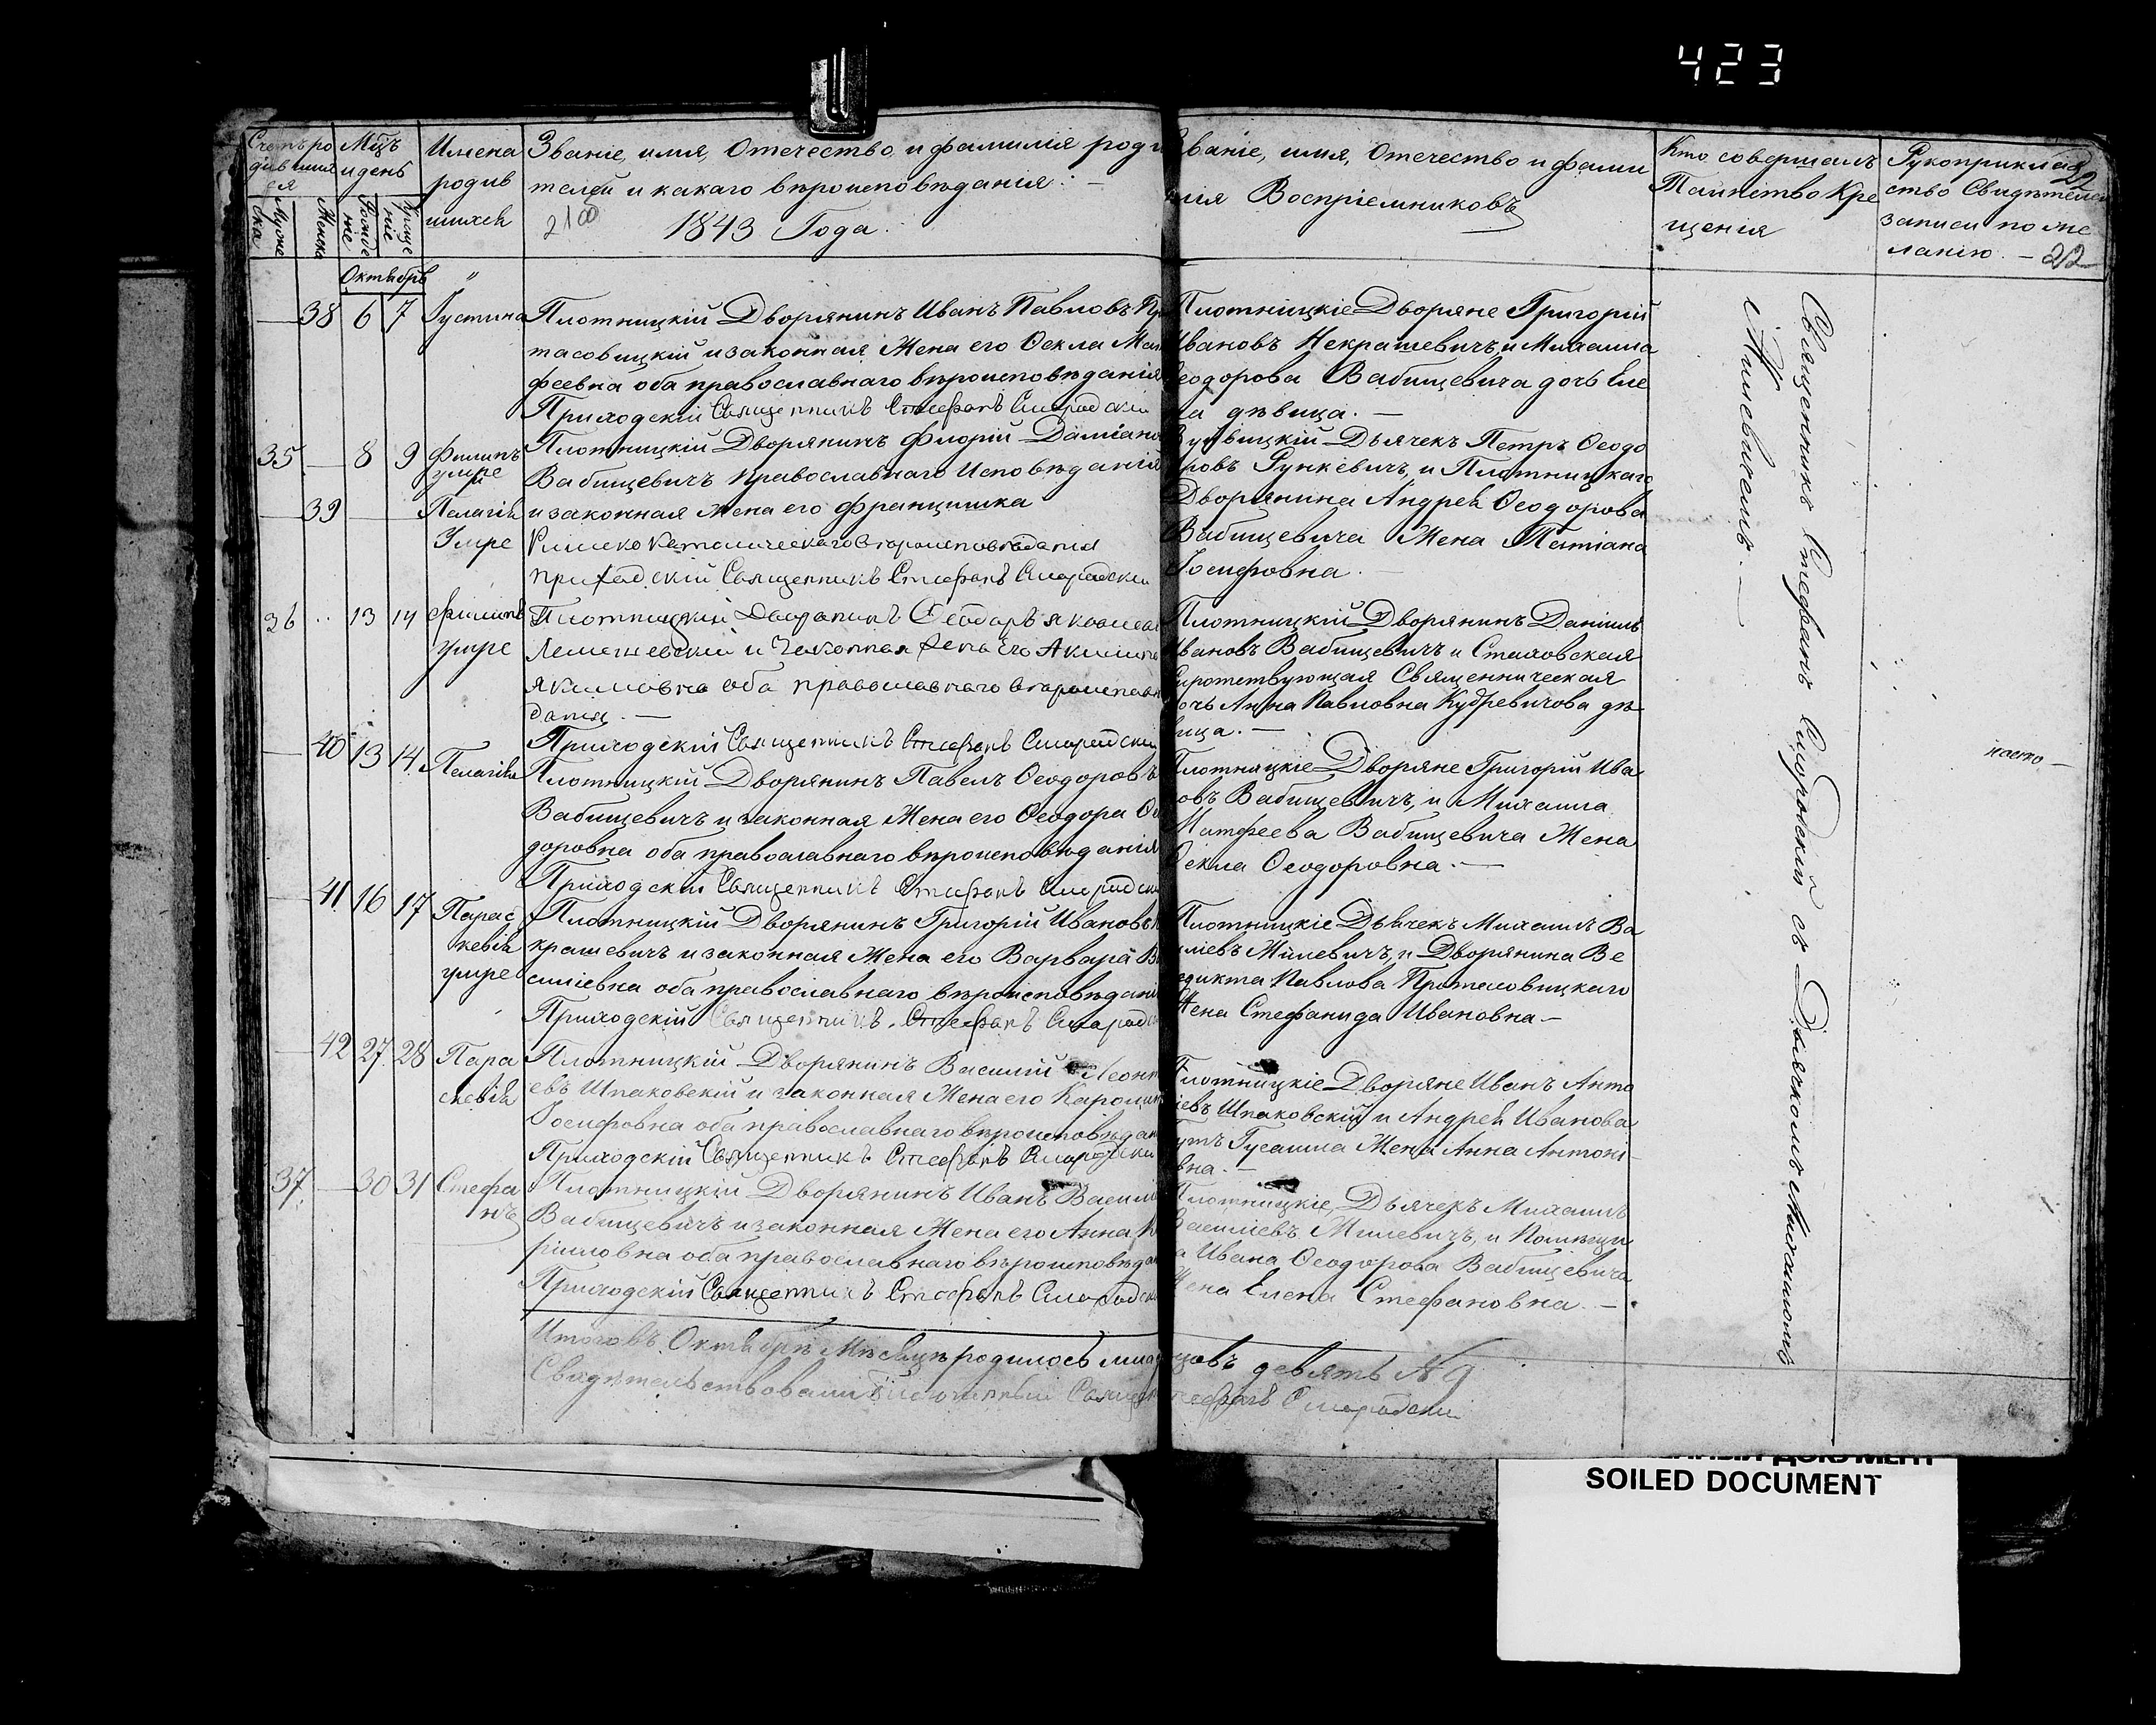 423
Счетъ ро
дивших
ся
Мужеска
Женска
Мцъ
и день
Рожде
ніе
Креще
ніе
Имена
родив
шихся
Званіе, имя, Отечество и фамилія роди
телей и какаго вѣроисповѣданія: —
2100 1843 Года.
Званіе, имя, Отечество и фами
лія Воспріемниковъ
Кто совершалъ
Таинство Кре
щенія
Рукоприклад
ство Свидѣтелей
записи по же
ланію. — 22
Октябрь "
38 6 7 Іустина
Плотницкій Дворянинъ Иванъ Павловъ Про
тасовицкій и законная Жена его Ѳекла Мат
феевна оба православнаго вѣроисповѣданія
Приходскій Священникъ Стефанъ Смородскій
Плотницкіе Дворяне Григорій
Ивановъ Некрашевичъ, и Михаила
Ѳеодорова Вабищевича дочь Еле
на дѣвица. —
35 — 8 9 Филипъ
умре
— 39 Пелагія
Умре
Плотницкій Дворянинъ Флорій Даміано
Вабищевичъ Православнаго Исповѣданія
и законная Жена его Францишка
Римско Католическаго вѣроисповѣданія
приходскій Священникъ Стефанъ Смородскій
Дьячекъ Петръ Ѳеодо
ровъ Рункевичъ, и Плотницкаго
Дворянина Андрея Ѳеодорова
Вабищевича Жена Татіана
Іосифовна. —
36 .. 13 14 Филипъ
умре
Плотницкій Дворянинъ Ѳеодоръ Яковлев
Лемешевскій и Законная Жена Его Акилина
Якимовна оба православнаго вѣроисповѣ
данія. —
Приходскій Священникъ Стефанъ Смородскій
Плотницкій Дворянинъ Даніилъ
Ивановъ Вабищевичъ и Стаховская
Сиротствующая Священническая
дочь Анна Павловна Кудревичова дѣ
вица. —
— 40 13 14 Пелагія
Плотницкій Дворянинъ Павелъ Ѳеодоровъ
Вабищевичъ и законная Жена его Ѳеодора Ѳе
доровна оба православнаго вѣроисповѣданія
Приходскій Священникъ Стефанъ Смородскі
Плотницкіе Дворяне Григорій Ива
новъ Вабищевичъ, и Михаила
Матфеева Вабищевича Жена
Ѳекла Ѳеодоровна. —
— 41 16 17 Парас
кевія
умре
Плотницкій Дворянинъ Григорій Ивановъ Н
крашевичъ и законная Жена его Варвара Ва
силіевна оба православнаго вѣроисповѣдані
Приходскій Священникъ Стефанъ Смородс
Плотницкіе Дьячекъ Михаилъ Ва
силіевъ Милевичъ, и Дворянина Ве
едикта Павлова Протасовицкаго
Жена Стефанида Ивановна —
— 42 27 28 Пара
скевія
Плотницкій Дворянинъ Василій Леонт
евъ Шпаковскій и законная Жена его Каролин
Іосифовна оба православнаго вѣроисповѣдан
Приходскій Священникъ Стефанъ Смородскій
Плотницкіе Дворяне Иванъ Анто
іевъ Шпаковскій и Андрея Иванова
Жена Анна Антоні
вна. —
37. — 30 31 Стефа
нъ
Плотницкій Дворянинъ Иванъ Василі
Вабищевичъ и законная Жена его Анна К
рилловна оба православнаго вѣроисповѣдан
Приходскій Священникъ Стефанъ Смородск
Плотницкіе, Дьячекъ Михаилъ
Василіевъ Милевичъ, и Помѣщи
а Ивана Ѳеодорова Вабищевича
Жена Елена Стефановна. —
Священникъ Стефанъ Смородскій съ Дьячкомъ Михаиломъ
Милевичемъ. —
Итого въ Октябрѣ Мѣсяцѣ родилось младенцовъ девять № 9
Свидѣтельствовали Священ Стефанъ Смородскій
SOILED DOCUMENT